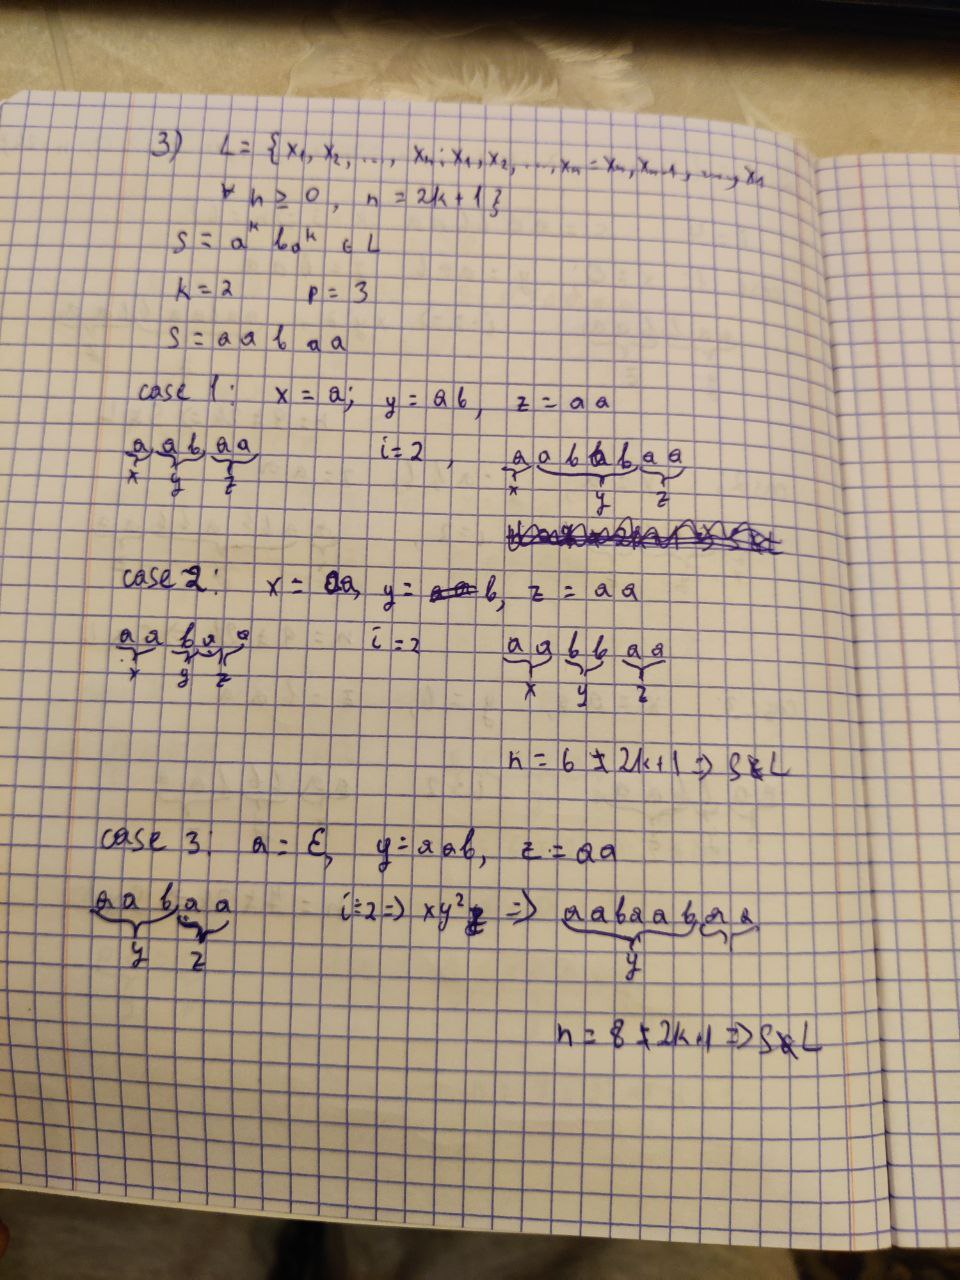 3) L = {x₁, x₂, ..., xₙ : x₁, x₂, ..., xₙ = xₙ, xₙ₋₁, ..., x₁
∀ n ≥ 0, n = 2k+1}
S = aᵏ b aᵏ ∈ L
k = 2 p = 3
S = a a b a a
case 1: x = a; y = ab, z = aa
a a b a a i = 2, a a b a b a a
x y z x y z
case 2: x = aa, y = b, z = aa
a a b a a i = 2 a a b b a a
x y z x y z
n = 6 ≠ 2k+1 => S ∉ L
case 3: a = ε, y = aab, z = aa
a a b a a i = 2 => xy²z => a a b a a b a a
y z y
n = 8 ≠ 2k+1 => S ∉ L